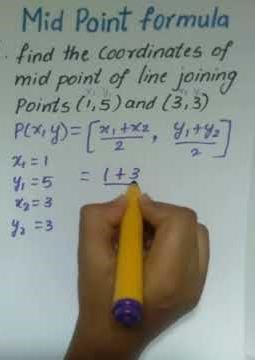 Mid Point formula
find the Coordinates of
mid point of line joining
x₁ y₁ x₂ y₂
Points (1,5) and (3,3)
P(x,y) = [x₁+x₂/2, y₁+y₂/2]
x₁ = 1
y₁ = 5
= 1+3
x₂ = 3
y₂ = 3